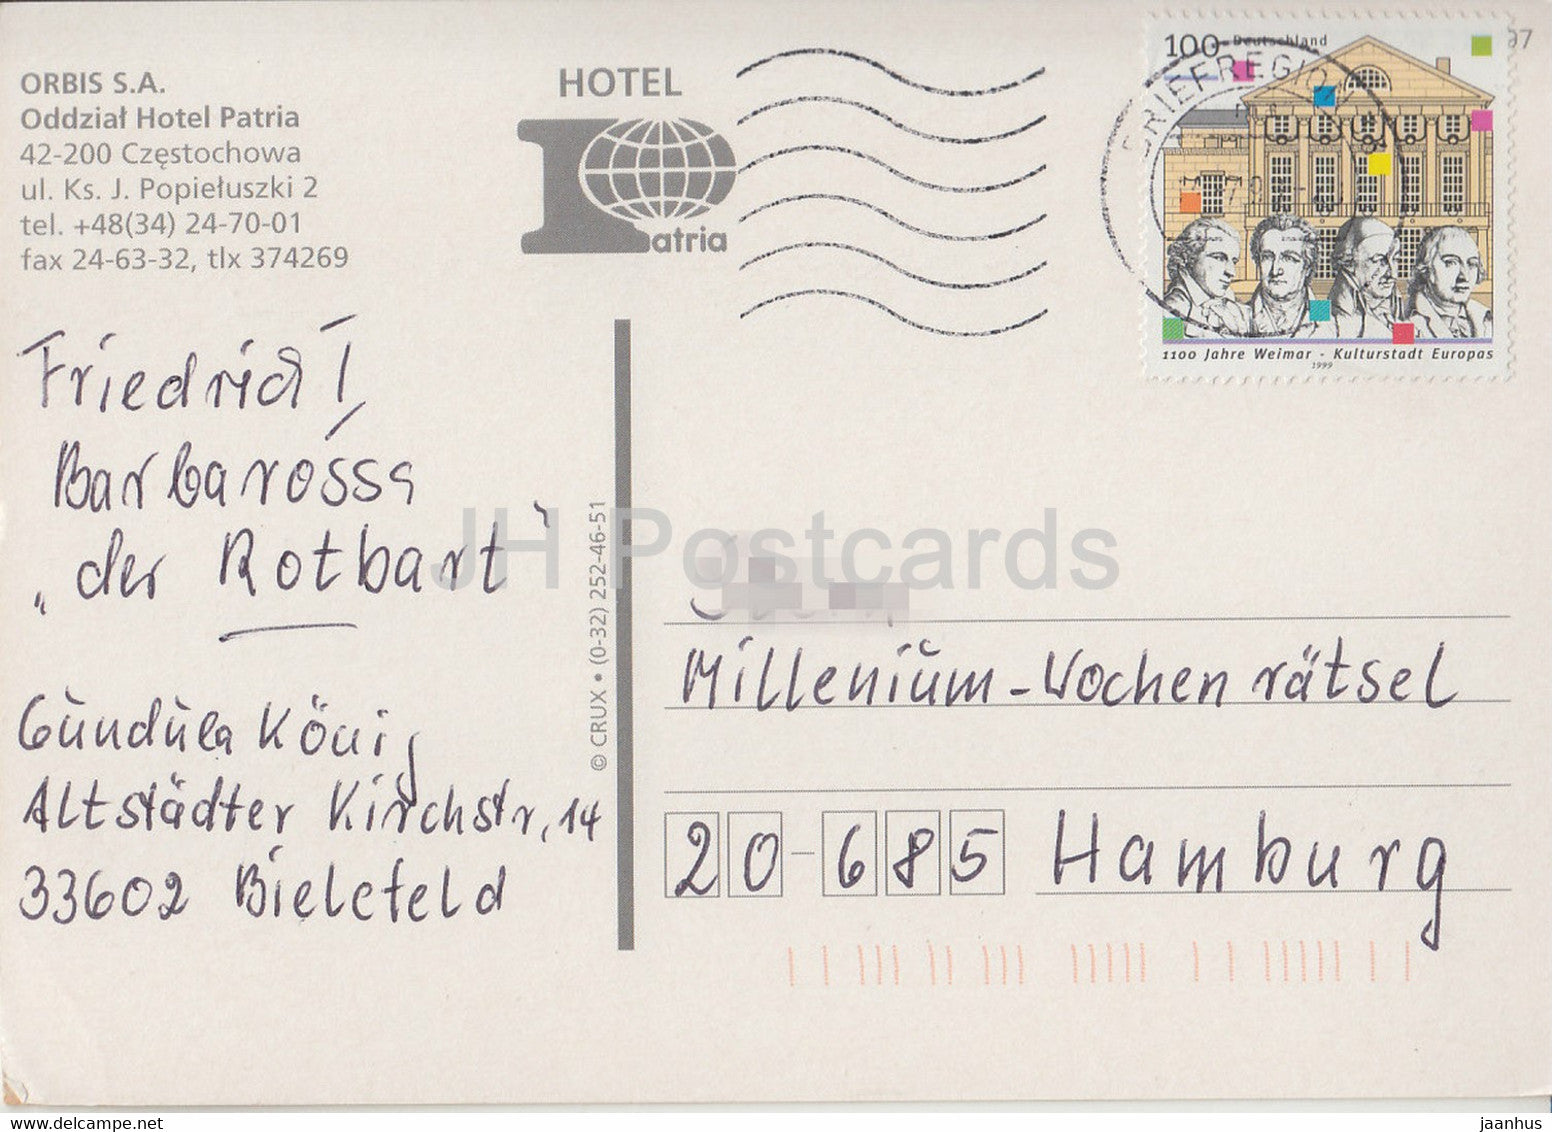 ORBIS S.A.
Oddział Hotel Patria
42-200 Częstochowa
ul. Ks. J. Popiełuszki 2
tel. +48(34) 24-70-01
fax 24-63-32, tlx 374269
HOTEL
Patria
100 Deutschland
97
BRIEFREGION
1100 Jahre Weimar - Kulturstadt Europas
1999
Friedrich I,
Barbarossa
„der Rotbart"
Gundula König
Altstädter Kirchstr. 14
33602 Bielefeld
© CRUX • (0-32) 252-46-51
JH Postcards
Millenium-Wochenrätsel
20-685 Hamburg
jaanhus